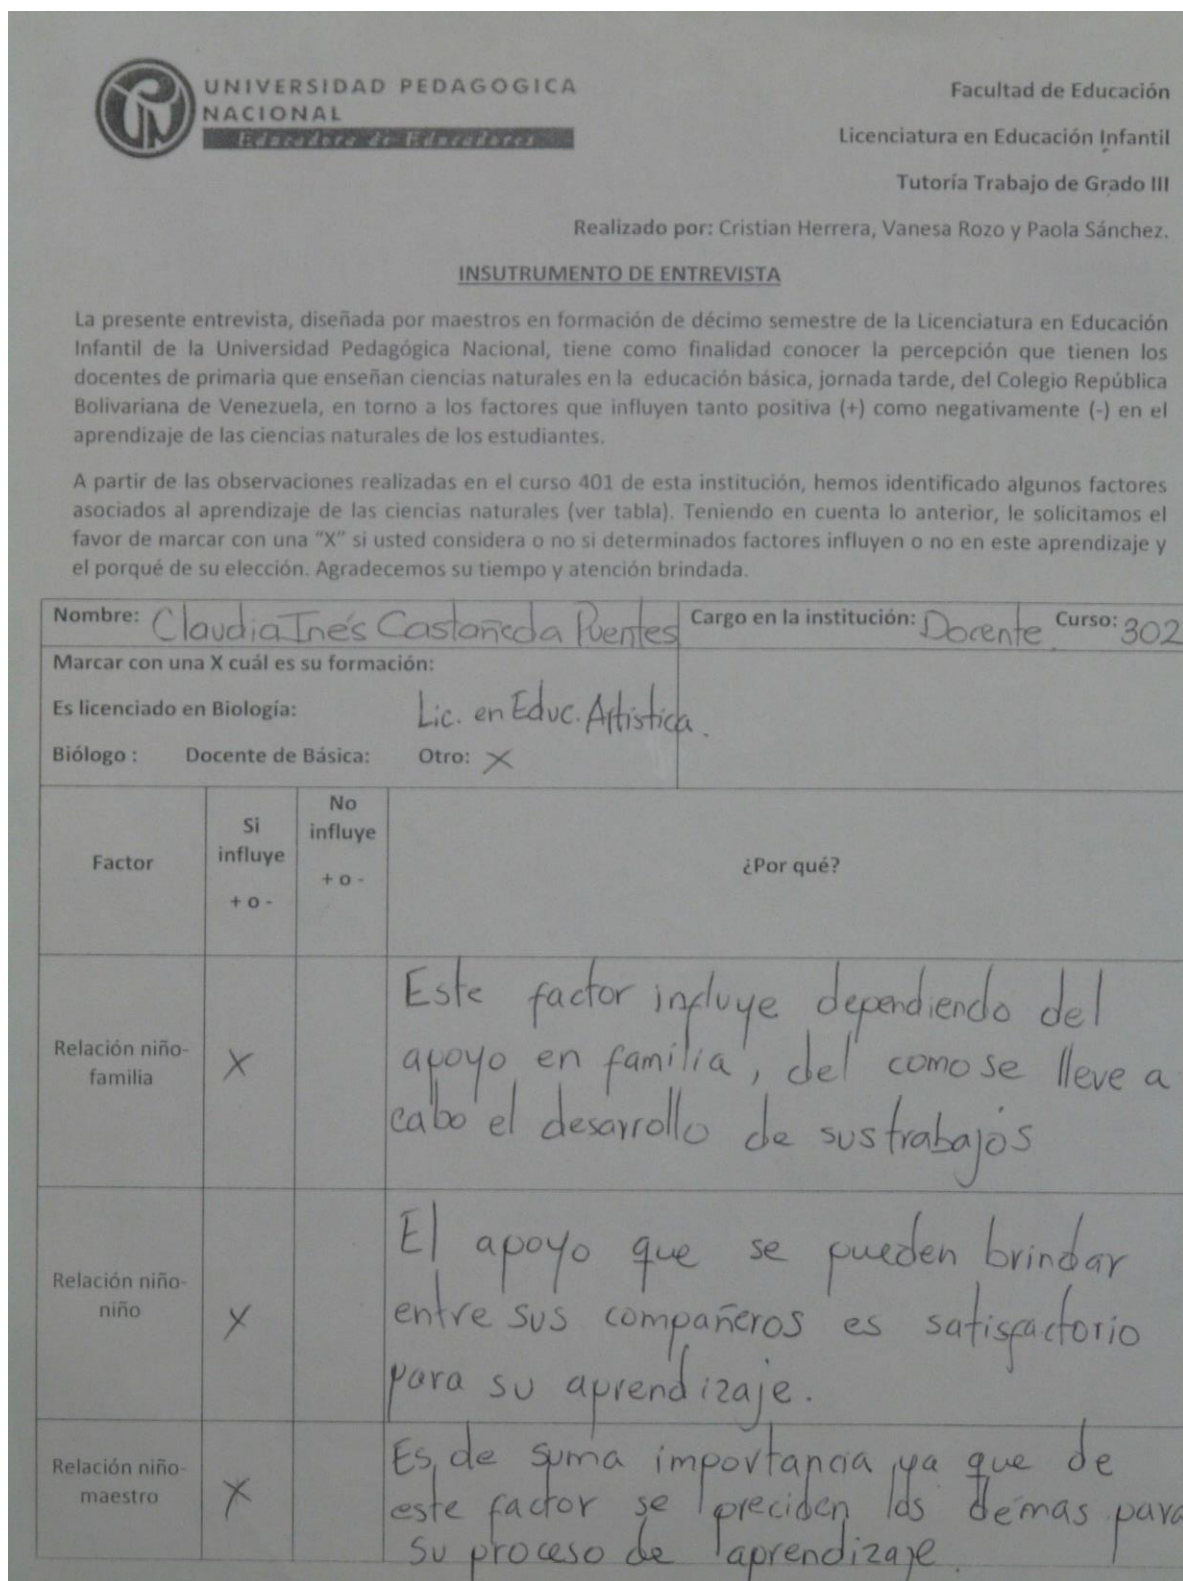 UNIVERSIDAD PEDAGOGICA
NACIONAL
Educadora de Educadores
Facultad de Educación
Licenciatura en Educación Infantil
Tutoría Trabajo de Grado III
Realizado por: Cristian Herrera, Vanesa Rozo y Paola Sánchez.
INSUTRUMENTO DE ENTREVISTA
La presente entrevista, diseñada por maestros en formación de décimo semestre de la Licenciatura en Educación
Infantil de la Universidad Pedagógica Nacional, tiene como finalidad conocer la percepción que tienen los
docentes de primaria que enseñan ciencias naturales en la educación básica, jornada tarde, del Colegio República
Bolivariana de Venezuela, en torno a los factores que influyen tanto positiva (+) como negativamente (-) en el
aprendizaje de las ciencias naturales de los estudiantes.
A partir de las observaciones realizadas en el curso 401 de esta institución, hemos identificado algunos factores
asociados al aprendizaje de las ciencias naturales (ver tabla). Teniendo en cuenta lo anterior, le solicitamos el
favor de marcar con una “X” si usted considera o no si determinados factores influyen o no en este aprendizaje y
el porqué de su elección. Agradecemos su tiempo y atención brindada.
Nombre: Claudia Inés Castañeda Puentes Cargo en la institución: Docente Curso: 302
Marcar con una X cuál es su formación:
Es licenciado en Biología: Lic. en Educ. Artistica.
Biólogo : Docente de Básica: Otro: X
Factor
Si
influye
+ o -
No
influye
+ o -
¿Por qué?
Relación niño-
familia
X
Este factor influye dependiendo del
apoyo en familia, del como se lleve a
cabo el desarrollo de sus trabajos
Relación niño-
niño
X
El apoyo que se pueden brindar
entre sus compañeros es satisfactorio
para su aprendizaje.
Relación niño-
maestro
X
Es de suma importancia ya que de
este factor se preciden los demas para
su proceso de aprendizaje.